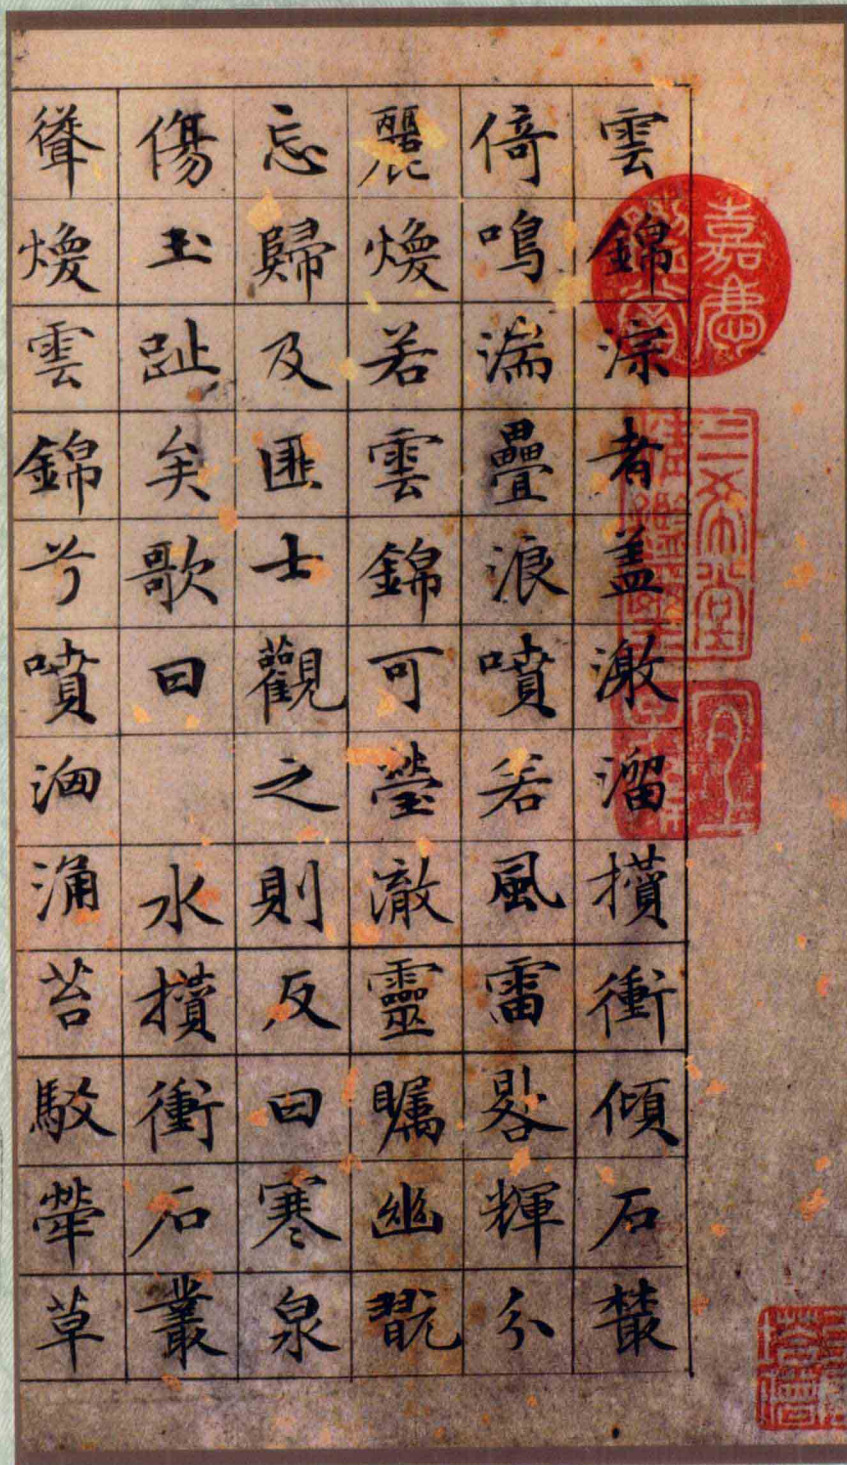 雲錦淙者盖激溜攅衝傾石藂
倚鳴湍疊浪噴若風雷晷輝分
麗煥若雲錦可瑩澈靈矚幽翫
忘歸及匪士觀之則反曰寒泉
傷玉趾矣歌曰　水攅衝石叢
聳煥雲錦兮噴洶涌苔駁犖草
嘉慶鑑賞
三希堂精鑑璽
宜子孫